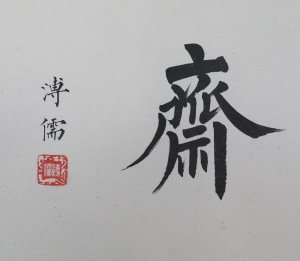 齋
溥儒